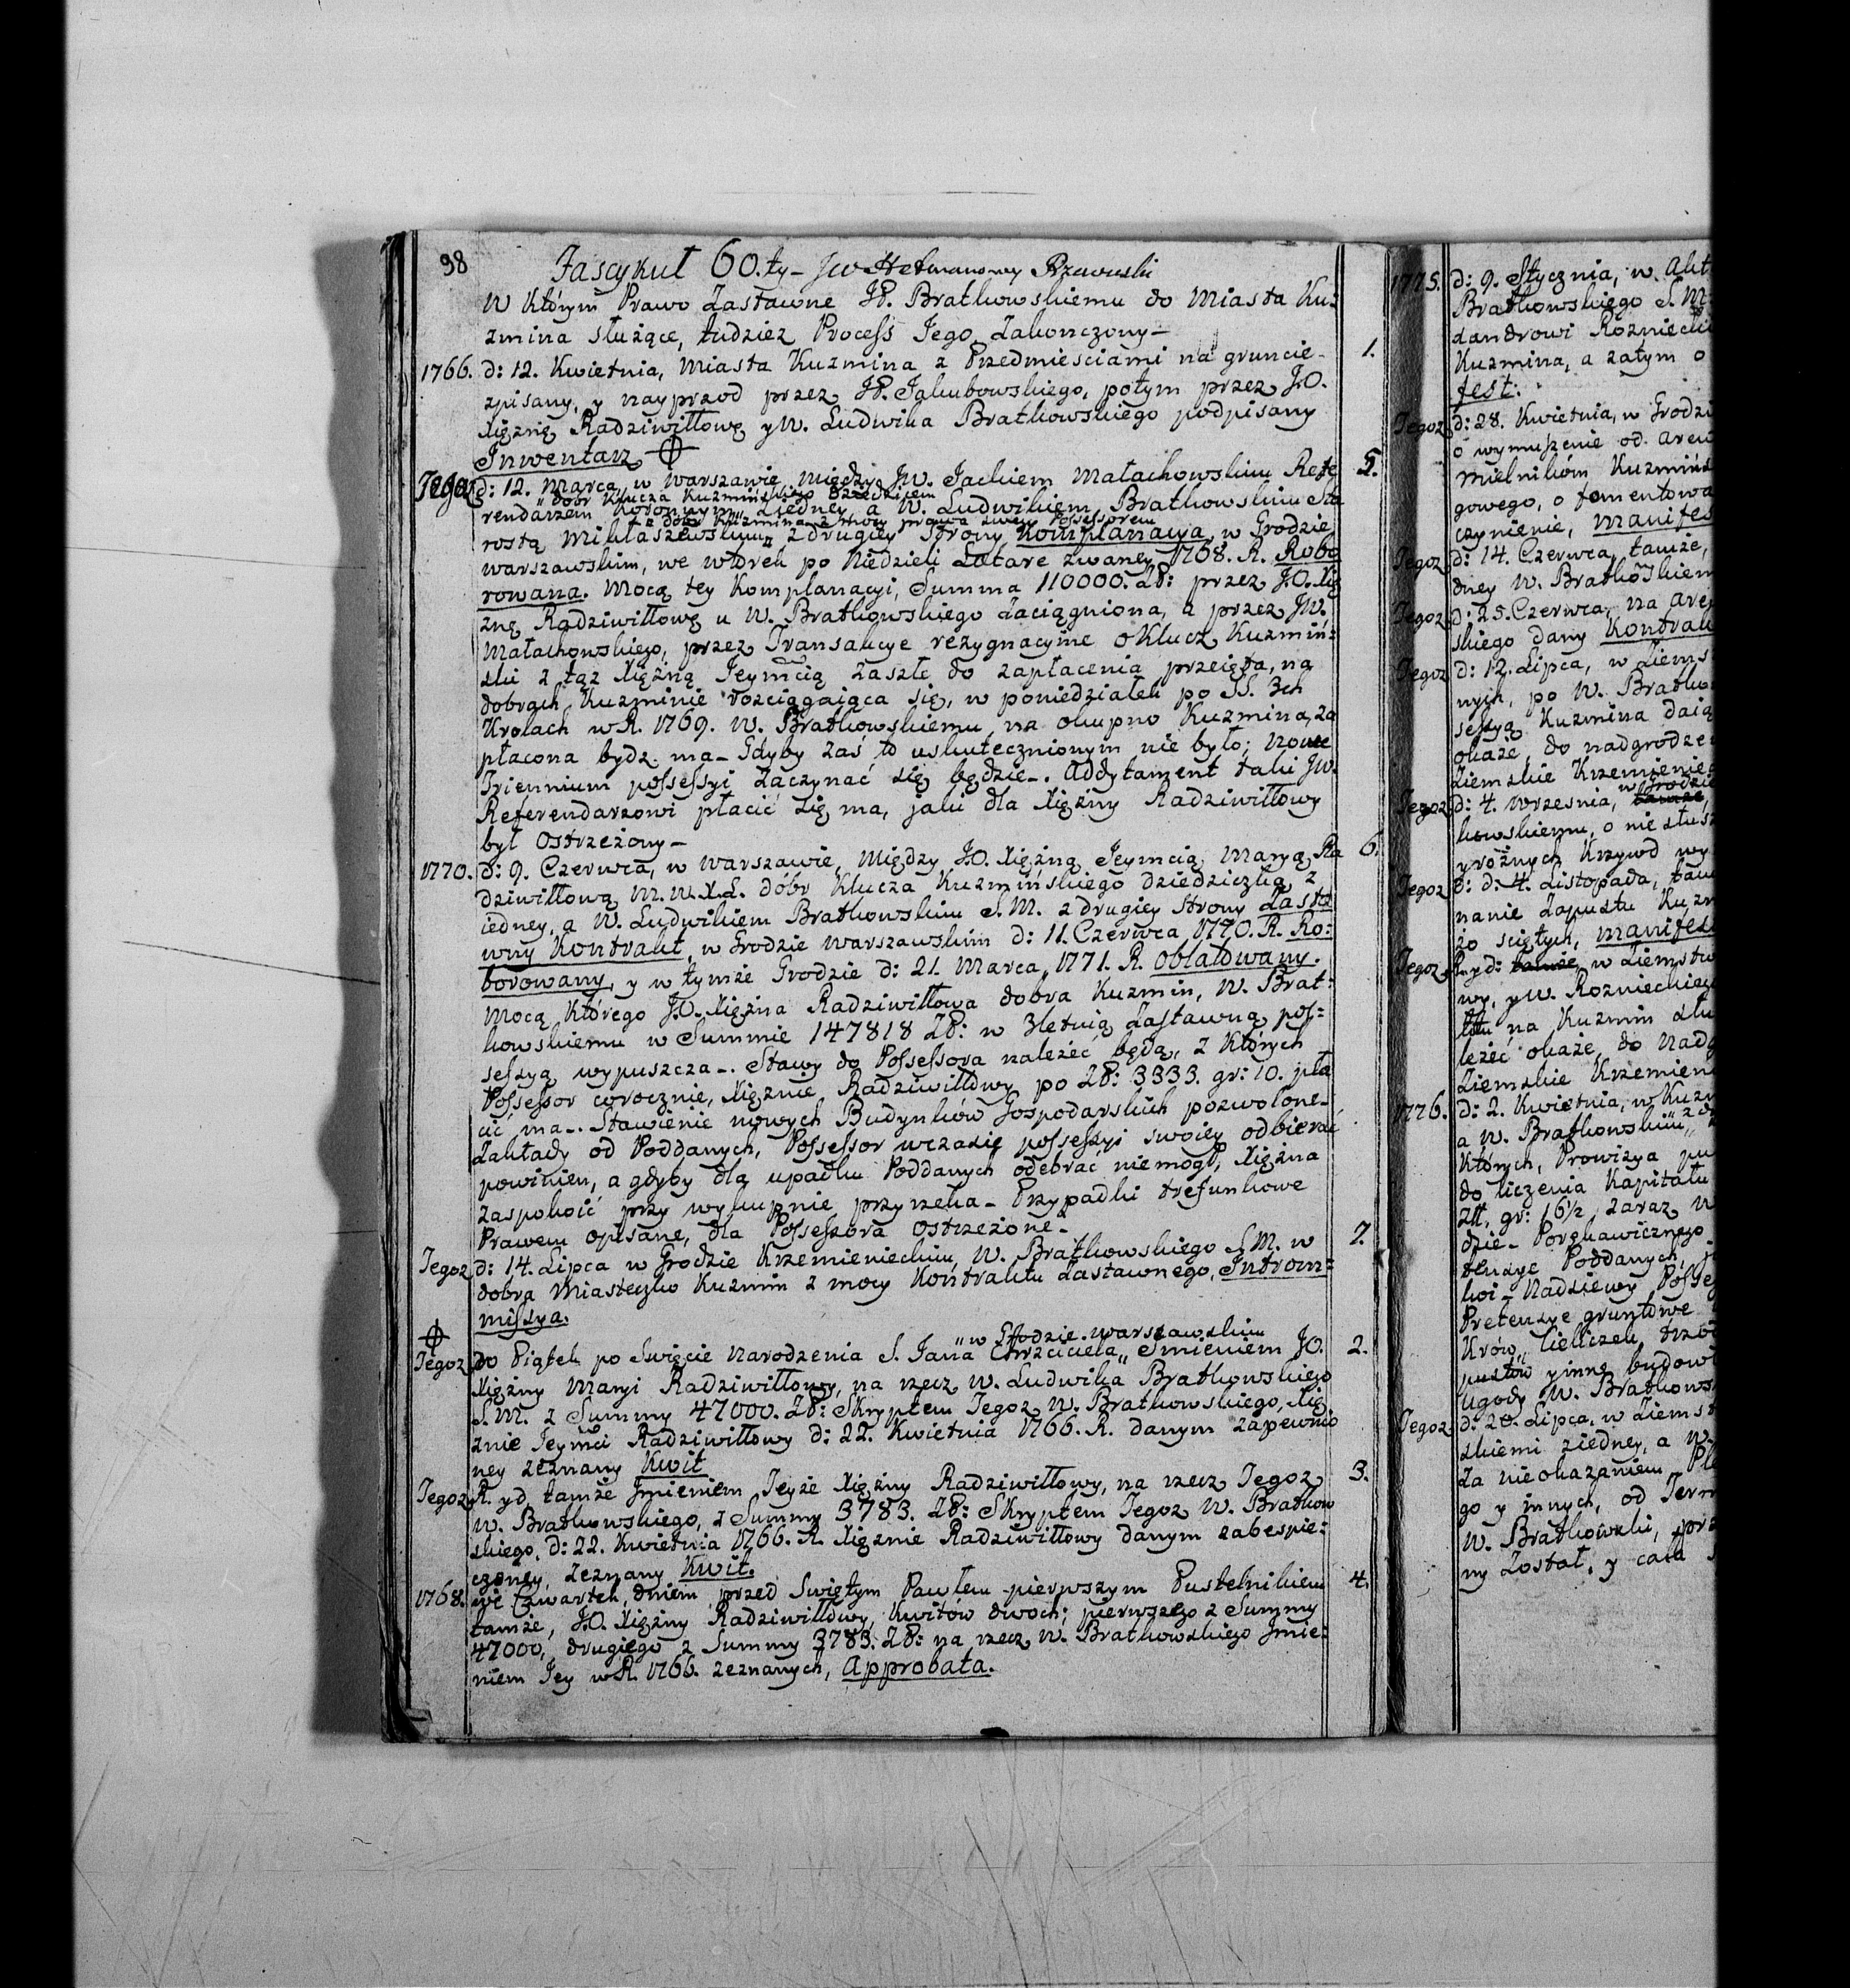 98
Fascykuł 60.ty – JW Hetmanowy Rzewuski
W którym Prawo Zastawne JP. Bratkowskiemu do Miasta Ku:
zmina służące, tudzież Process Jego Zakonczony –
1766. d: 12. Kwietnia, Miasta Kuzmina z Przedmiesciami na gruncie 1.
zpisany, y nayprzod przez JP. Jakubowskiego, potym przez J.O.
Xiężnię Radziwiłłowę y W. Ludwika Bratkowskiego podpisany
Inwentarz
Tegoż d: 12. Marca, w Warszawie między JW. Jackiem Małachowskim Refe 5.
„dobr Klucza Kuzmińskiego Dziedzicem
rendarzem Koronnym„ z iedney, a W. Ludwikiem Bratkowskim Sta
„z dobr Kuzmina z mocy prawa swego Possessorem
rostą Miktaszewskim„ z drugiey Strony Komplanacya, w Grodzie
warszawskim, we wtorek po Niedzieli Lætare zwaney 1768. R. Robo
rowana. Mocą tey Komplanacyi, Summa 110000. Zł: przez J.O. Xię
znę Radziwiłłowę u W. Bratkowskiego Zaciągniona, a przez JW.
Małachowskiego, przez Transakcye rezygnacyine o Klucz Kuzmiń:
ski z taż Xiężną Jeymcią Zaszłe do zapłacenia przeięta, na
dobrach Kuzminie rozciągaiąca się, w poniedziałek po SS. 3ch
Krolach w R. 1769. W. Bratkowskiemu na okupno Kuzmina, za
płacona bydz ma – Gdyby zaś to uskutecznionym nie było; nowe
Triennium possessyi Zaczynać się będzie –. Addytament taki JW.
Referendarzowi płacić się ma, jaki dla Xiężny Radziwiłłowy
był Ostrzeżony –
1770. d: 9. Czerwca, w Warszawie, Między J.O. Xiężną Jeymcią Maryą Ra 6.
dziwiłłową M.W.X.L. dóbr Klucza Kuzmińskiego dziedziczką z
iedney, a W. Ludwikiem Bratkowskim S.M. z drugiey Strony Zasta
wny Kontrakt, w Grodzie Warszawskim d: 11. Czerwca 1770. R. Ro:
borowany, y w tymże Grodzie d: 21. Marca, 1771. R. Oblatowany.
Mocą Którego J.O. Xiężna Radziwiłłowa dobra Kuzmin, W. Brat:
kowskiemu w Summie 147818 Zł: w 3letnią Zastawną pos:
sessyą wypuszcza –. Stawy do Possessora należeć będą, z Których
Possessor corocznie, Xiężnie Radziwiłłowy po Zł: 3333. gr: 10. pła
cić ma –. Stawienie nowych Budynków Gospodarskich pozwolone –
Zakłady od Poddanych, Possessor wczasie possessyi swoiey odbierać
powinien, a gdyby dla upadku Poddanych odebrać niemogł, Xiężna
zaspokoić przy wykupnie przyrzeka – Przypadki trefunkowe
Prawem opisane, dla Possessora ostrzeżone –
Tegoż d: 14. Lipca w Grodzie Krzemienieckim, W. Bratkowskiego S.M. w 7.
dobra Miasteczko Kuzmin z mocy Kontraktu Zastawnego, Introm:
missya.
„w Grodzie warszawskim
Tegoż do Piątek po Swięcie Narodzenia S. Jana Chrzciciela„ Jmieniem J.O. 2.
Xiężny Maryi Radziwiłłowy, na rzecz W. Ludwika Bratkowskiego
S.M. z Summy 47000. Zł: Skryptem Tegoż W. Bratkowskiego, Xię
znie Jeymci Radziwiłłowy d: 22. Kwietnia 1766. R. danym zapewnio
ney zeznany Kwit
Tegoż R. y d. tamże Jmieniem Teyże Xiężny Radziwiłłowy, na rzecz Tegoż 3.
W. Bratkowskiego, z Summy 3783. Zł: Skryptem Tegoż W. Bratkow
skiego, d: 22. Kwietnia 1766. R. Xiężnie Radziwiłłowy danym zabespie:
czoney, zeznany Kwit.
1768. we Czwartek, dniem przed Swiętym Pawłem pierwszym Pustelnikiem 4.
tamże, J.O. Xiężny Radziwiłłowy, Kwitów dwoch; pierwszego z Summy
47000, drugiego z Summy 3783. Zł: na rzecz W. Bratkowskiego Jmie:
niem Jey w R. 1766. zeznanych, Approbata.
1775. d: 9. Stycznia, w
Bratkowskiego S.M.
Kuzmina, a zatym o
fest:
Tegoż d: 28. Kwietnia, w
o wymuszenie od
mielników
gowego, o
czynienie,
Tegoż d: 14. Czerwca, tamże,
dney W.
Tegoż d: 25. Czerwca, na
skiego dany
Tegoż d: 12. Lipca, w
nych, po W.
sessyą Kuzmina
okaże, do
Ziemskie
Tegoż d: 4. Wrzesnia,
kowskiemu, o
y rożnych Krzywd
Tegoż d: 4. Listopada,
nanie Zapustu
żo ściętych,
Tegoż R. y d: w
wy, y W.
na Kuzmin
leżeć okaże, do
Ziemskie
1776. d: 2. Kwietnia, w
a W.
Których, Prowizya
do liczenia Kapitału
gr: 16½ zaraz
dzie –
Poddanych,
Pretensye gruntowe
Krów,
y inne
ugody W.
Tegoż d: 20. Lipca, w
skiemi ziedney, a W.
Za nieokazaniem
go y innych, od
W. Bratkowski,
ny Został, y cała